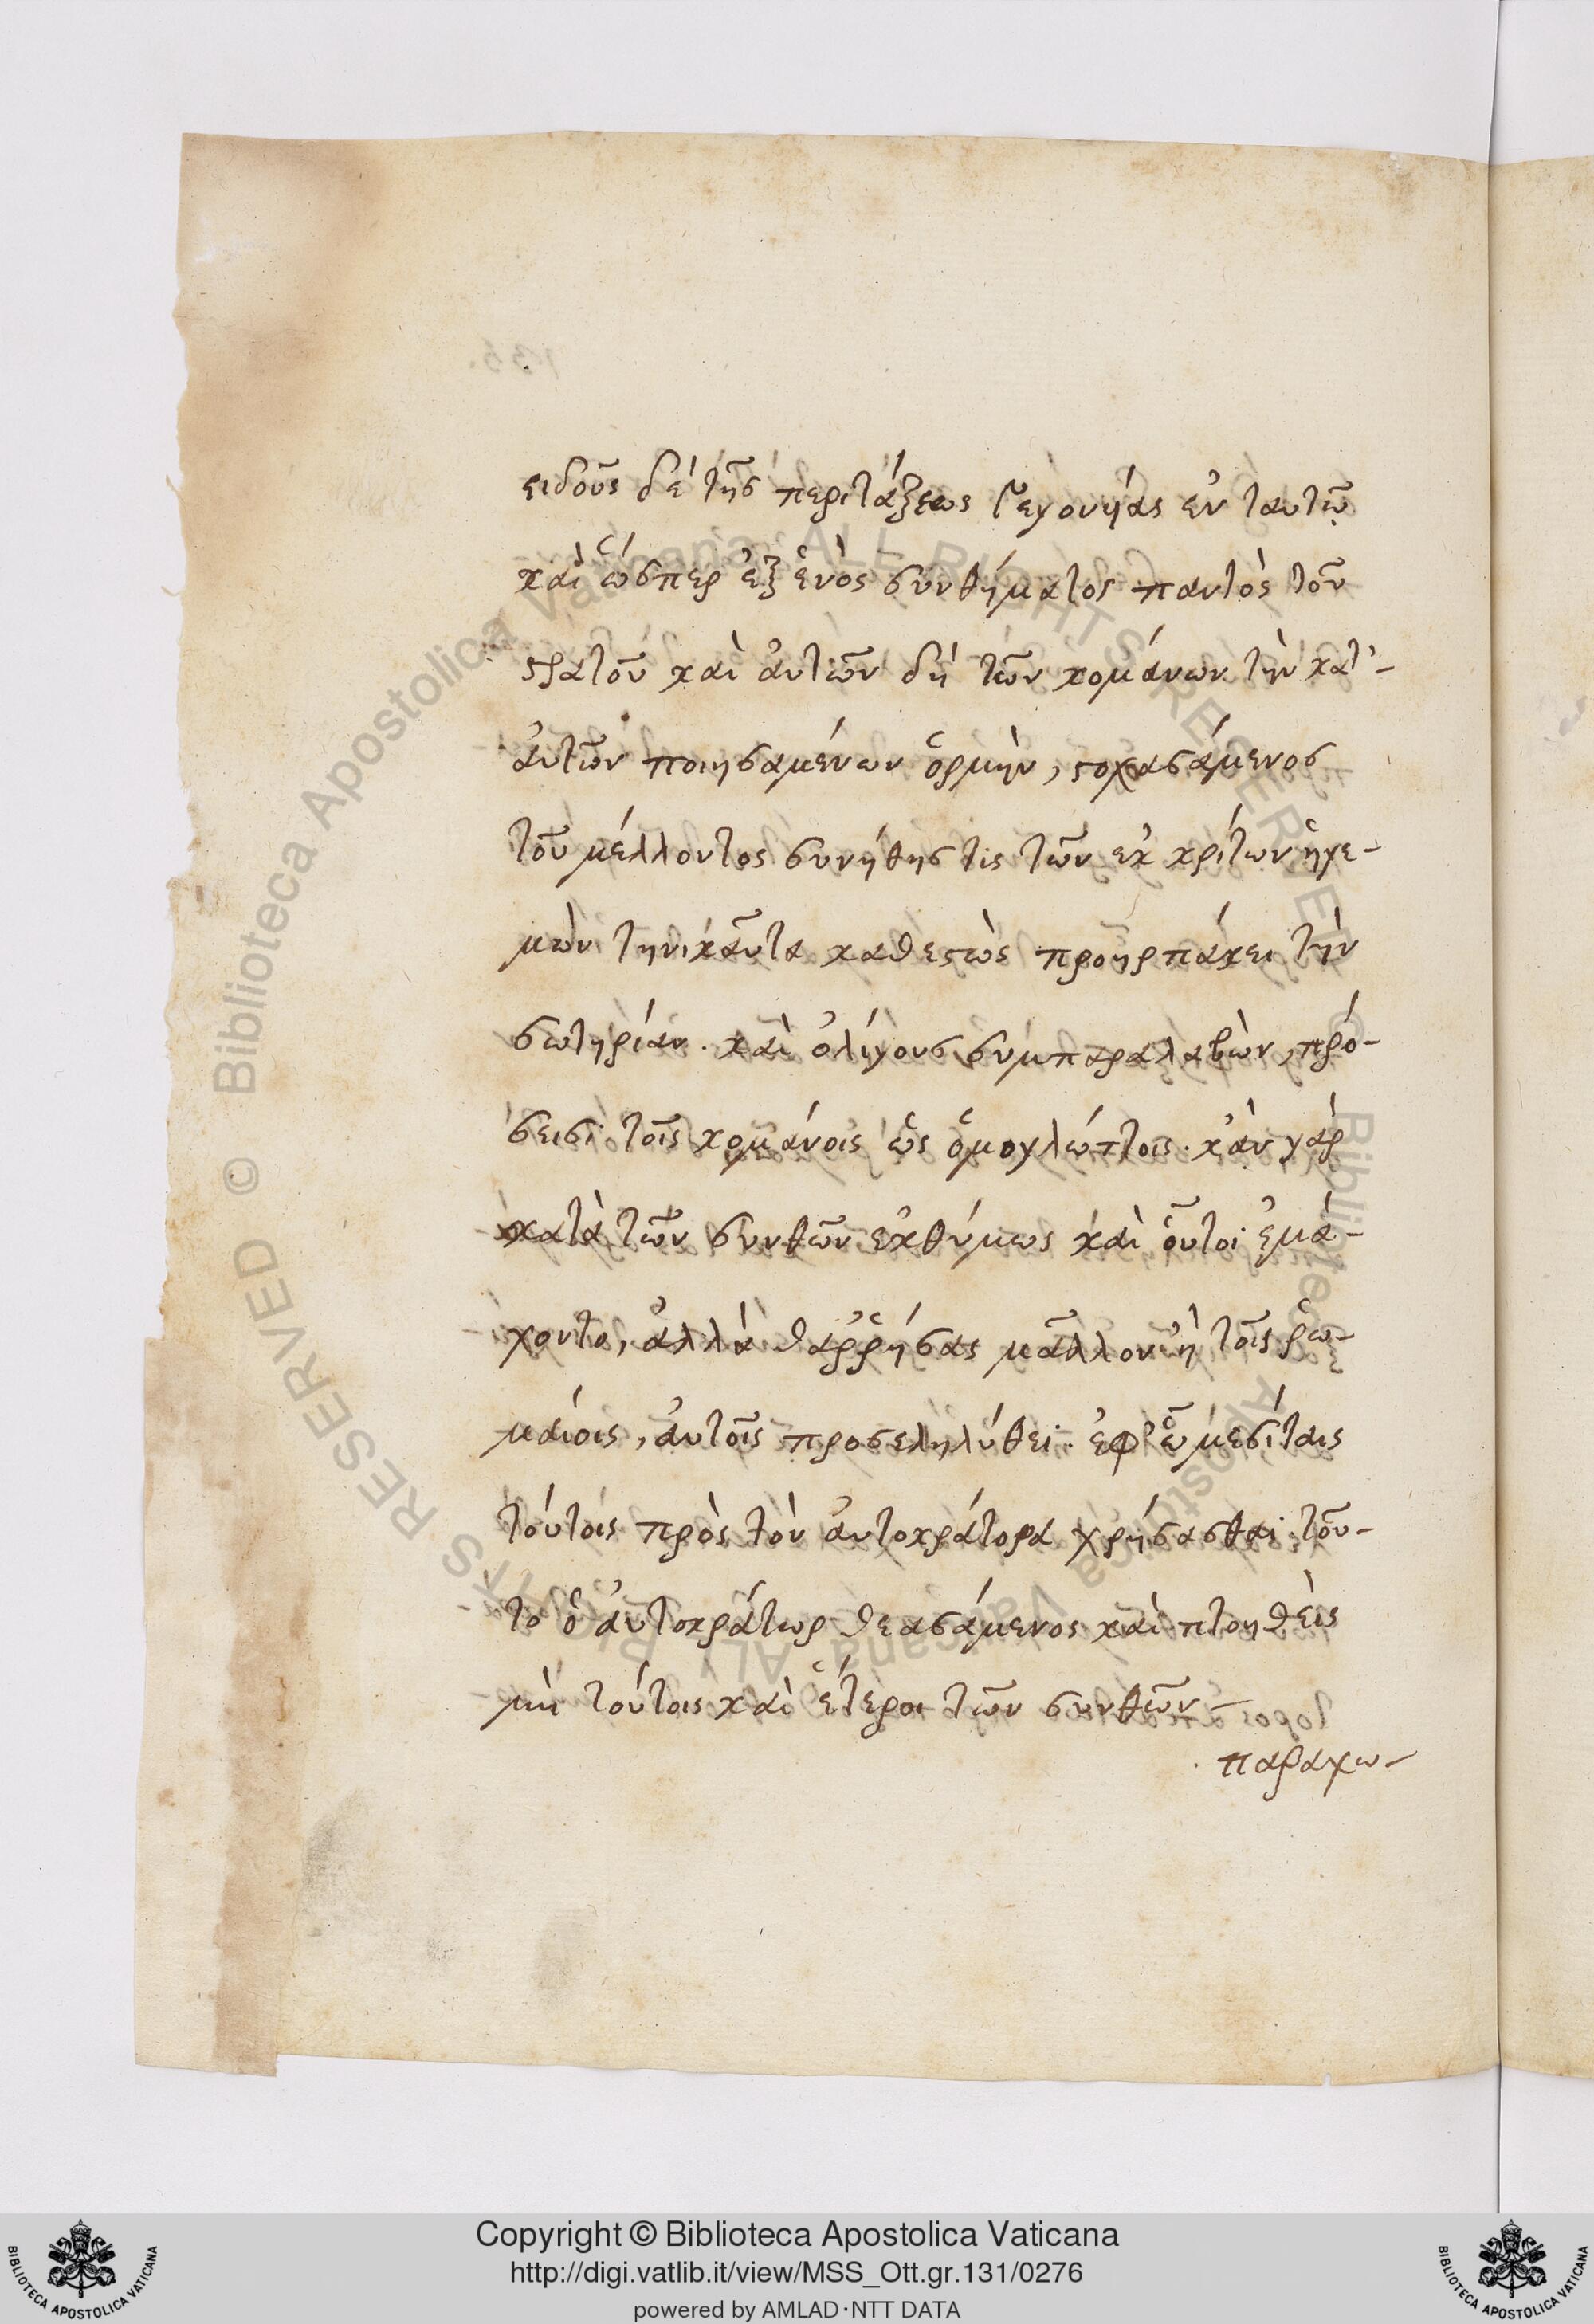 ειδοῦς δὲ τῆς περιτάξεως γεγονυίας ἐν ταυτῷ
καὶ ὥσπερ ἐξ ἑνὸς συνθήματος παντὸς τοῦ
στρατοῦ καὶ ἀυτῶν δὴ τῶν κομάνων τὴν κατ'-
ἀυτῶν ποιησαμένων ὁρμὴν, στοχασάμενος
τοῦ μέλλοντος συνήθης τὶς τῶν ἐκ κρίτων ἡγε-
μὼν τηνικαῦτα καθεστὼς προηρπάκει τὴν
σωτηρίαν. καὶ ὀλίγους συμπαραλαβὼν, πρό-
σεισι τοῖς κομάνοις ὡς ὁμογλώττοις. κἀν γὰρ
κατὰ τῶν σκυθῶν ἐκθύμως καὶ οὗτοι ἐμά-
χοντο, ἀλλὰ θαῤῥήσας μᾶλλον ἢ τοῖς ῥω-
μαίοις, ἀυτοῖς προσεληλύθει. ἐφ' ᾧ μεσίταις
τούτοις πρὸς τὸν ἀυτοκράτορα χρήσασθαι. τοῦ-
το ὁ ἀυτοκράτωρ θεασάμενος καὶ πτοηθεὶς
μὴ τούτοις καὶ ἕτεροι τῶν σκυθῶν
παραχω-
Copyright © Biblioteca Apostolica Vaticana
http://digi.vatlib.it/view/MSS_Ott.gr.131/0276
powered by AMLAD·NTT DATA
BIBLIOTECA APOSTOLICA VATICANA
BIBLIOTECA APOSTOLICA VATICANA
© Biblioteca Apostolica Vaticana ALL RIGHTS RESERVED
© Biblioteca Apostolica Vaticana ALL RIGHTS RESERVED